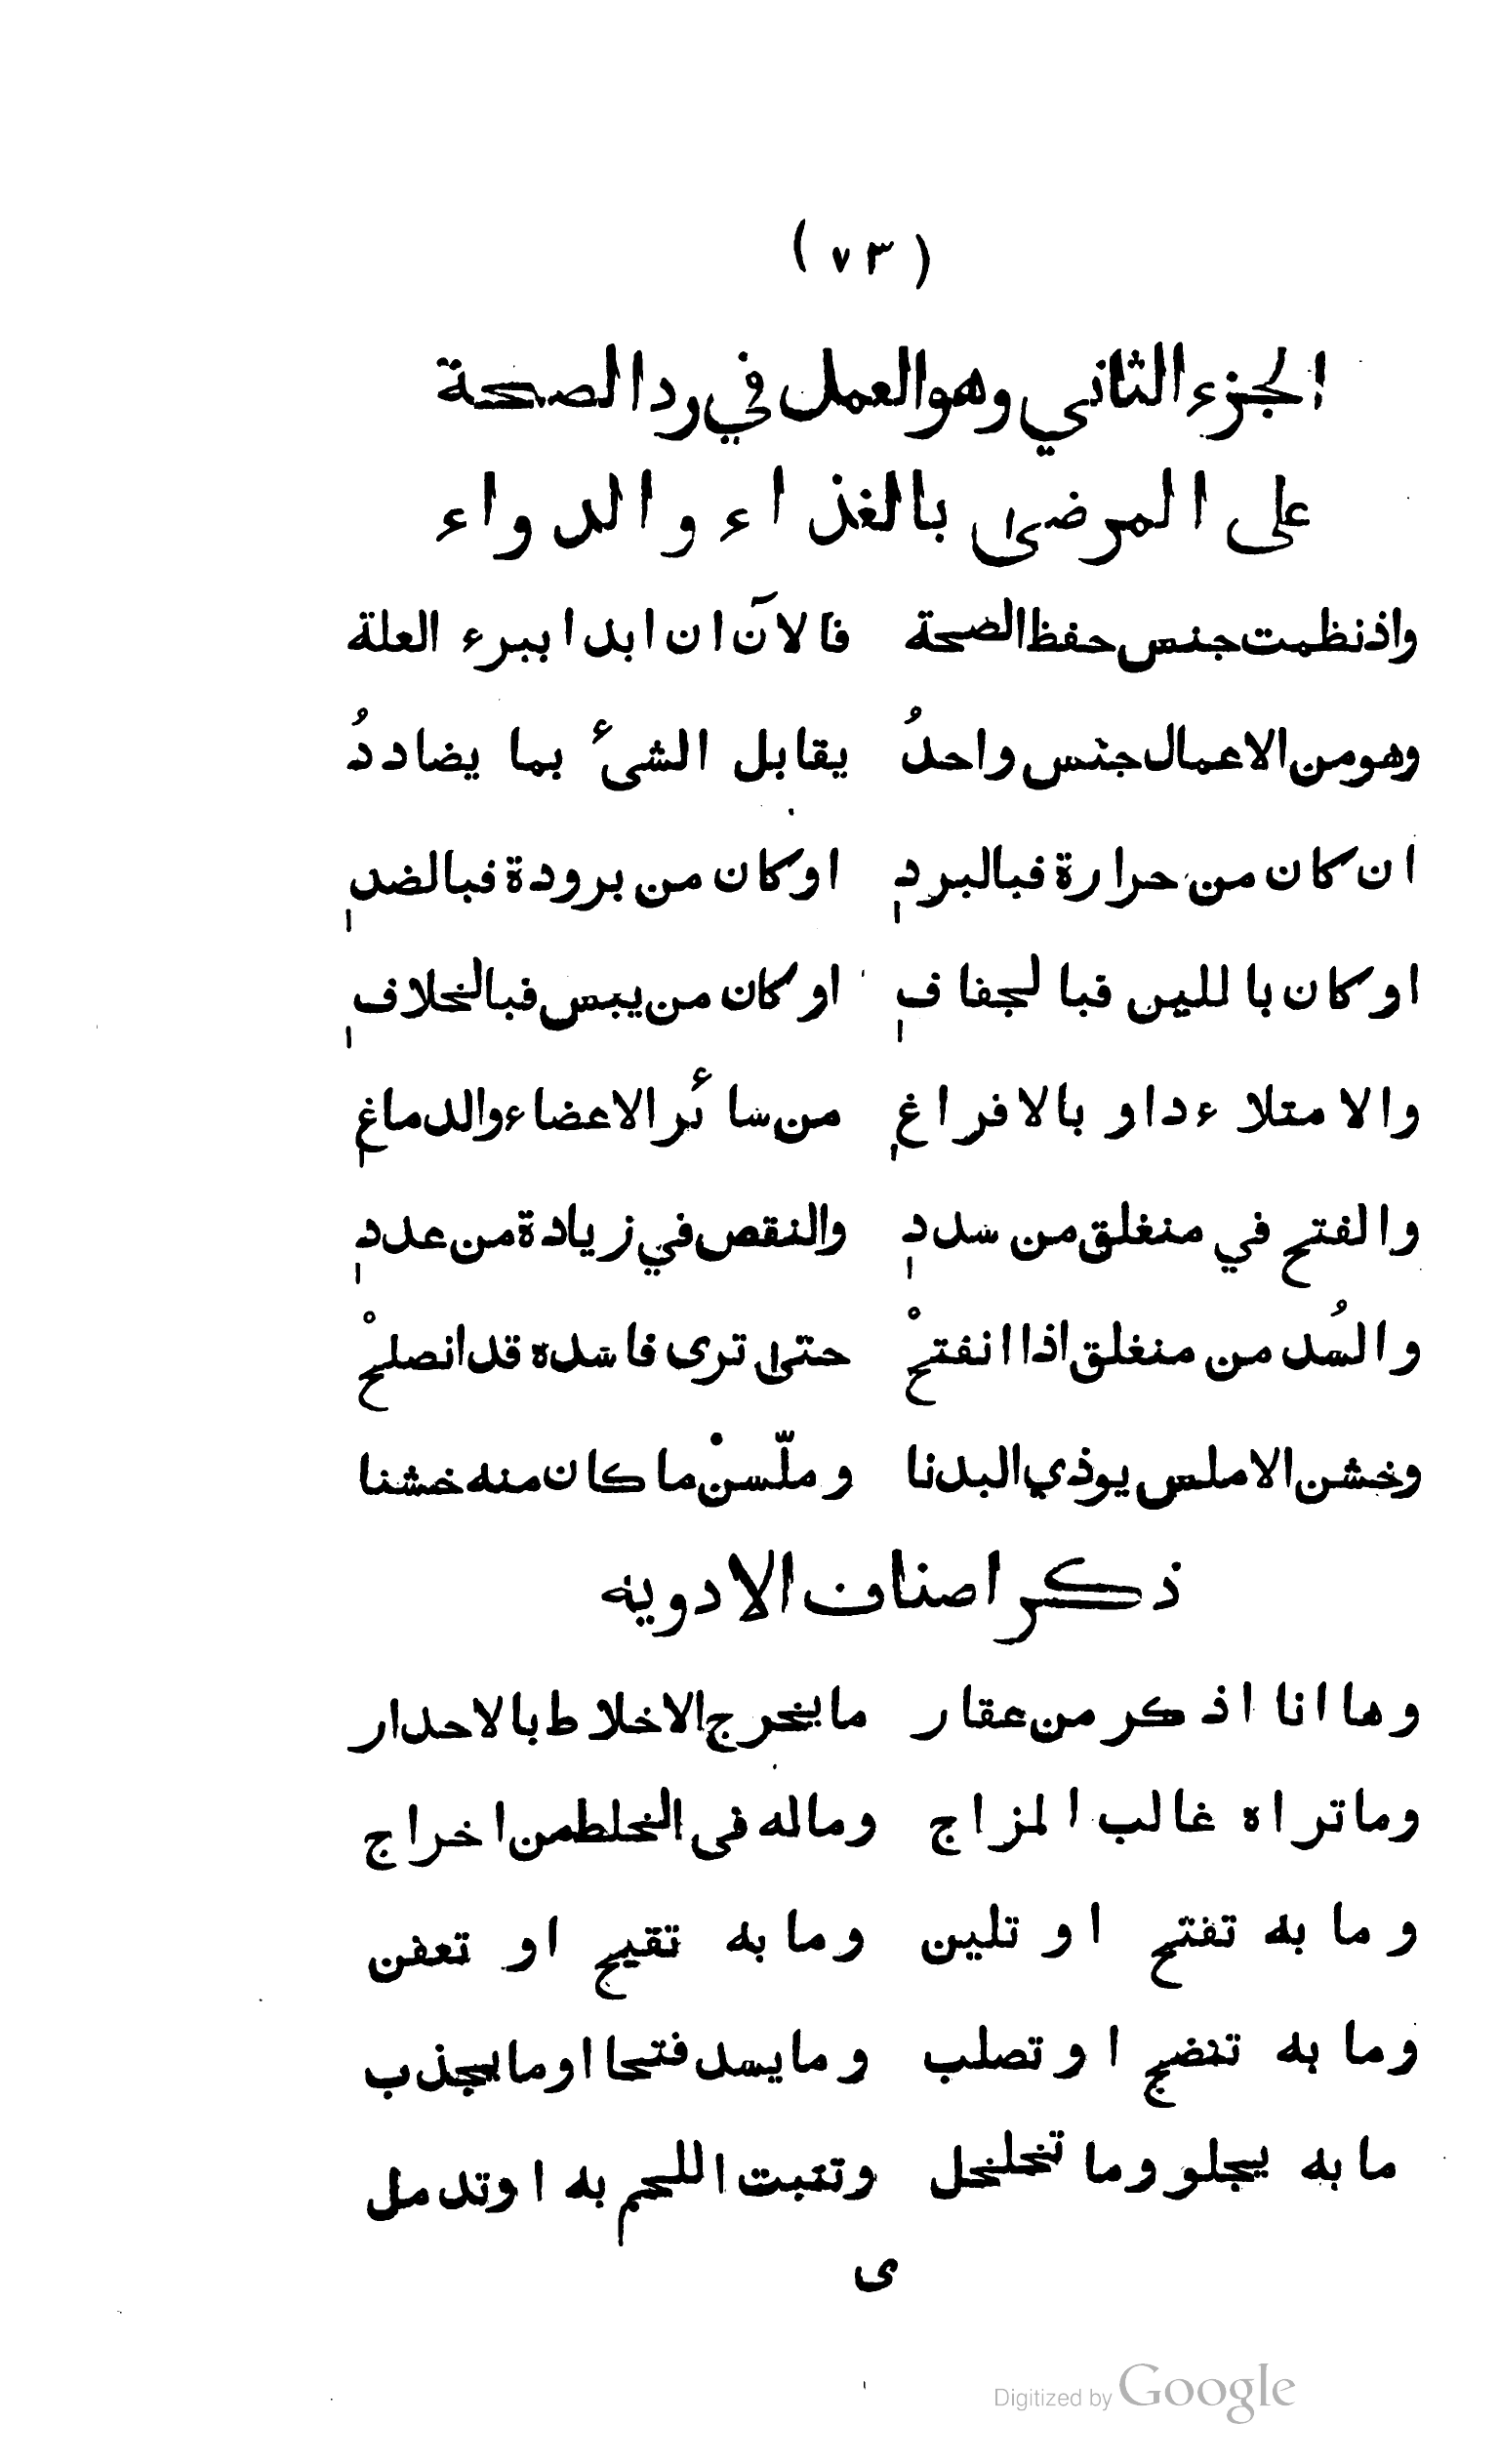 (٧٣)
الجزء الثاني وهو العمل في رد الصحة
على المرضى بالغذاء والدواء
واذ نظمت جنس حفظ الصحة فالآن ان ابدا ببرء العلة
وهو من الاعمال جنس واحدُ يقابل الشئ بما يضاددُ
ان كان من حرارة فبالبردِ او كان من برودة فبالضدِ
او كان باللين فبالجفافِ او كان من يبس فبالخلافِ
والامتلاء داو بالافراغِ من سائر الاعضاء والدماغِ
والفتح في منغلق من سددِ والنقص في زيادة من عددِ
والسُد من منغلق اذا انفتحْ حتى ترى فاسده قد انصلحْ
وخشن الاملس يوذي البدنا وملّسنْ ما كان منه خشنا
ذكر اصناف الادوية
وها انا اذكر من عقار ما يخرج الاخلاط بالاحدار
وما تراه غالب المزاج وماله فى الخلط من اخراج
وما به تفتح او تلين وما به تقيح او تعفن
وما به تنضج او تصلب وما يسد فتحا او ما يجذب
ما به يجلو وما تخلخل وتنبت اللحم به او تدمل
ى
Digitized by Google